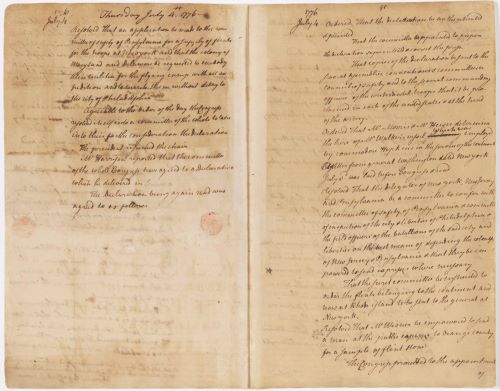 1776
July 4
Thursday July 4. 1776
Resolved that an application be made to the com
mittee of safety of Pensylvania for a supply of flints
for the troops at New york and that the colony of
Maryland and Delaware be requested to embody
their militia for the flying camp with all ex
pedition and to march them without delay to
the city of Philadelphia
Agreeable to the order of the day the Congress
resolved itself into a committee of the whole to take
into their farther consideration the declaration
The president resumed the chair
Mr Harrison reported that the committee
of the whole Congress have agreed to a Declaration
which he delivered in
The Declaration being again read was
agreed to as follows
1776
July 4
Ordered That the declaration be authenticated
& printed
That the committee appointed to prepare
the declaration superintend & correct the press.
That copies of the declaration be sent to the
several assemblies, conventions & committees or
councils of safety and to the several commanding
officers of the continental troops that it be pro
claimed in each of the united states & at the head
of the army.
Ordered That Mr
by commodore Hopkins in the service of the continent
general Washington dated New york
July was laid before Congress & read
Resolved That the delegates of New york, New Jersey
and Pensylvania be a committee to confer with
the committee of safety of Pensylvania & committee
of inspection of the city & liberties of Philadelphia &
the field officers of the battalions of the said city and
liberties on the best means of defending the colonies
of New Jersey & Pensylvania & that they be em
powered to send expresses where necessary
That the said committee be instructed to
order the flints belonging to the continent and
now at Rhode island to be sent to the general at
New york.
Resolved That Mr Wisner be empowered to send
a man at the public expence to Orange county
for a sample of flint stone
The Congress proceeded to the appointment
of